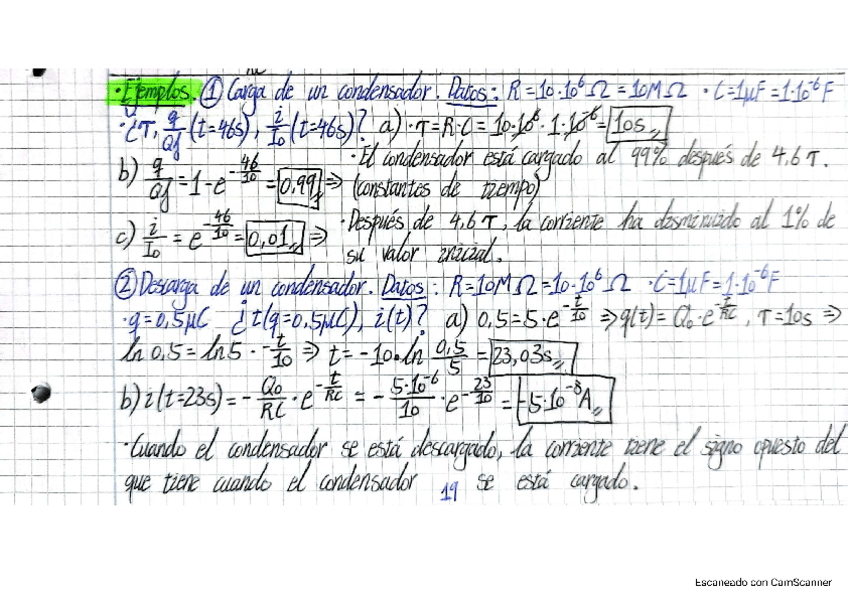 ·Ejemplos. ① Carga de un condensador. Datos: R=10·10⁶Ω=10MΩ ·C=1μF=1·10⁻⁶F
·¿τ, q/Qf (t=46s), i/I₀ (t=46s)? a) ·τ=R·C=10·10⁶·1·10⁻⁶=10s
b) q/Qf=1-e^(-46/10)=0,99 ⇒ ·El condensador está cargado al 99% después de 4,6τ.
(constantes de tiempo)
c) i/I₀=e^(-46/10)=0,01 ⇒ ·Después de 4,6τ, la corriente ha disminuido al 1% de
su valor inicial.
② Descarga de un condensador. Datos: R=10MΩ=10·10⁶Ω ·C=1μF=1·10⁻⁶F
·q=0,5μC ¿t(q=0,5μC), i(t)? a) 0,5=5·e^(-t/10) ⇒ q(t)=Q₀·e^(-t/RC), τ=10s ⇒
ln0,5=ln5·-t/10 ⇒ t=-10·ln 0,5/5 = 23,03s
b) i(t=23s)=-Q₀/RC·e^(-t/RC)=-5·10⁻⁶/10·e^(-23/10)=-5·10⁻⁸A
·Cuando el condensador se está descargado, la corriente tiene el signo opuesto del
que tiene cuando el condensador se está cargado.
19
Escaneado con CamScanner